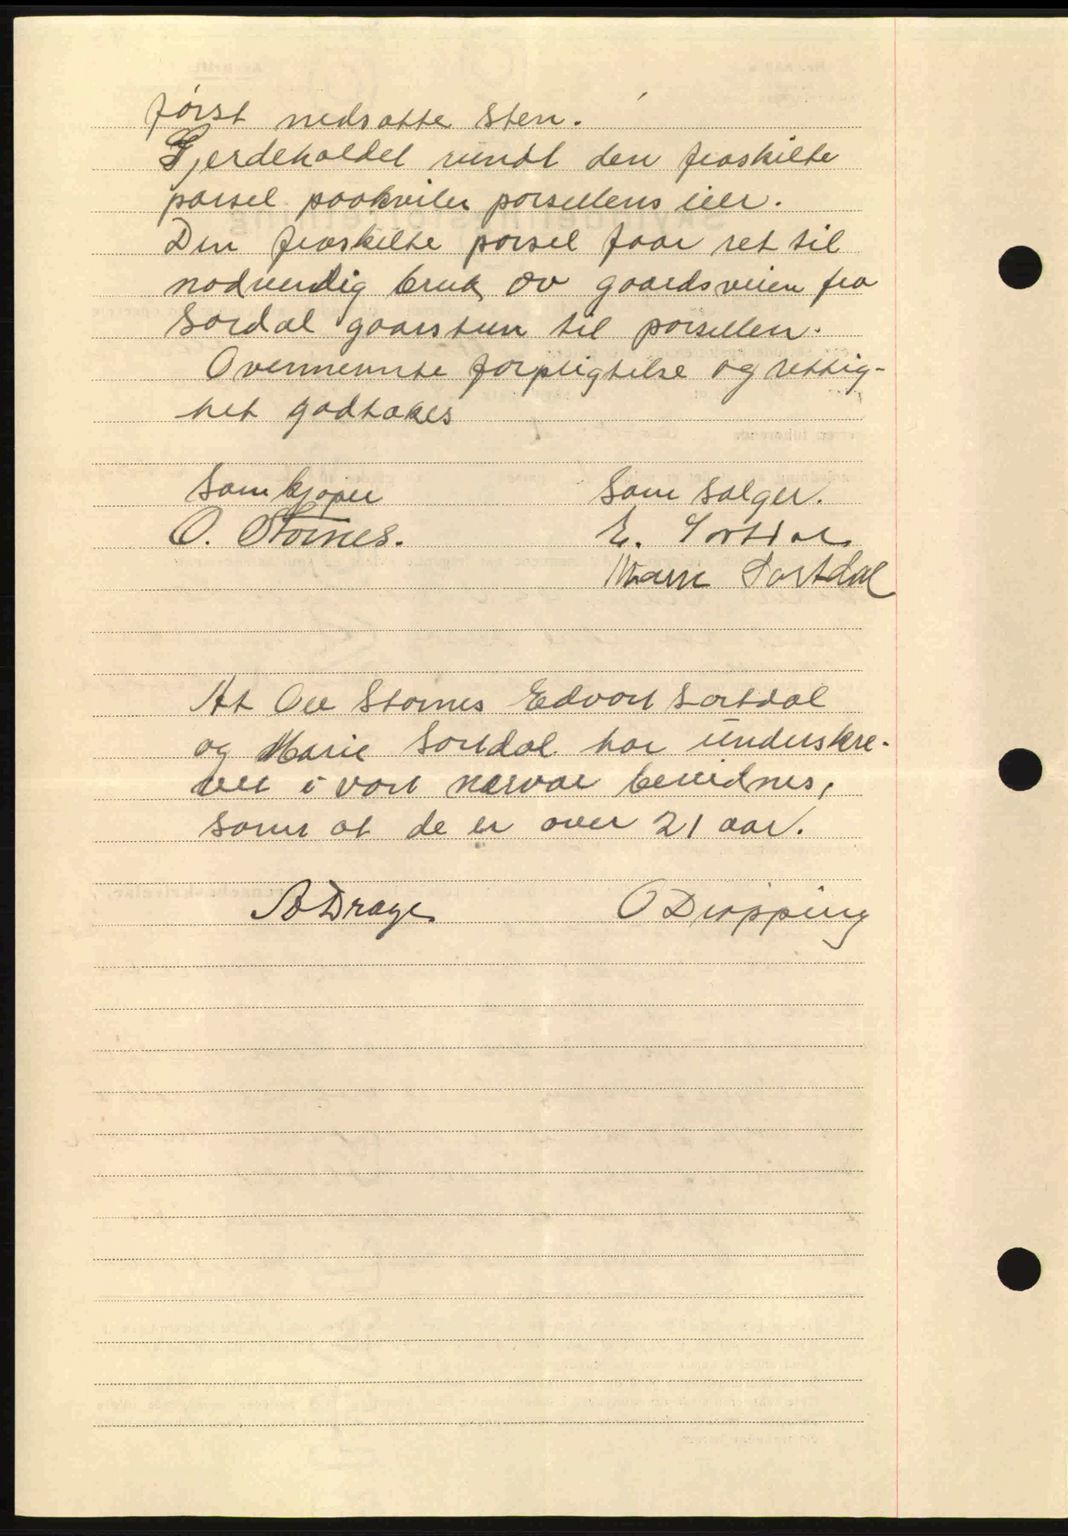 først nedsatte Sten.
Gjerdeholdet rundt den fraskilte
parsel paakviler parsellens eier.
Den fraskilte parsel faar ret til
nødvendig bruk av gaardsveien fra
Sørdal gaarstun til parsellen.
Ovennevnte forpligtelse og rettig-
het godtakes
Som kjøper
Som selger.
O. Stornes.
E. Sortdal
Marie Sortdal
At Ole Stornes Edvart Sortdal
og Marie Sortdal har underskre-
vet i vort nærvær bevidnes,
samt at de er over 21 aar.
A Drage
O Drøpping